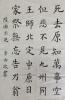 死去原知萬事空
但悲不見九州同
王師北定中原日
家祭無忘告乃翁
陸游示兒